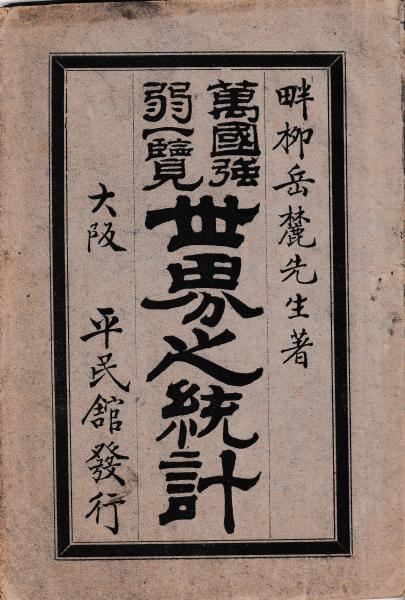 畔柳岳麓先生著
萬國強
弱一覽
世界之統計
大阪　平民舘發行